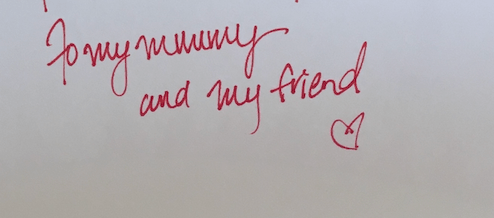 To my mummy
and my friend